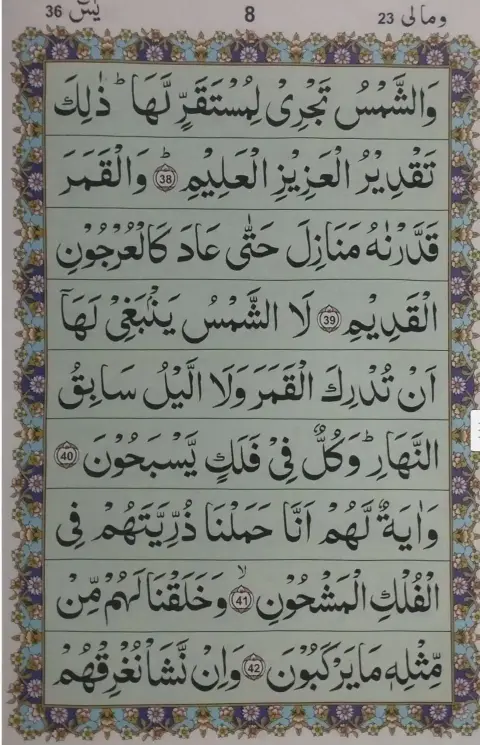 يٰسٓ 36
8
ومالی 23
وَالشَّمْسُ تَجْرِىْ لِمُسْتَقَرٍّ لَّهَا ؕ ذٰلِكَ
تَقْدِيْرُ الْعَزِيْزِ الْعَلِيْمِ ﴿38﴾ؕ وَالْقَمَرَ
قَدَّرْنٰهُ مَنَازِلَ حَتّٰى عَادَ كَالْعُرْجُوْنِ
الْقَدِيْمِ ﴿39﴾ لَا الشَّمْسُ يَنْۢبَغِىْ لَهَاۤ
اَنْ تُدْرِكَ الْقَمَرَ وَلَا الَّيْلُ سَابِقُ
النَّهَارِ ؕ وَكُلٌّ فِىْ فَلَكٍ يَّسْبَحُوْنَ ﴿40﴾
وَاٰيَةٌ لَّهُمْ اَنَّا حَمَلْنَا ذُرِّيَّتَهُمْ فِى
الْفُلْكِ الْمَشْحُوْنِ ﴿41﴾ۙ وَخَلَقْنَا لَهُمْ مِّنْ
مِّثْلِهٖ مَا يَرْكَبُوْنَ ﴿42﴾ وَاِنْ نَّشَاْ نُغْرِقْهُمْ